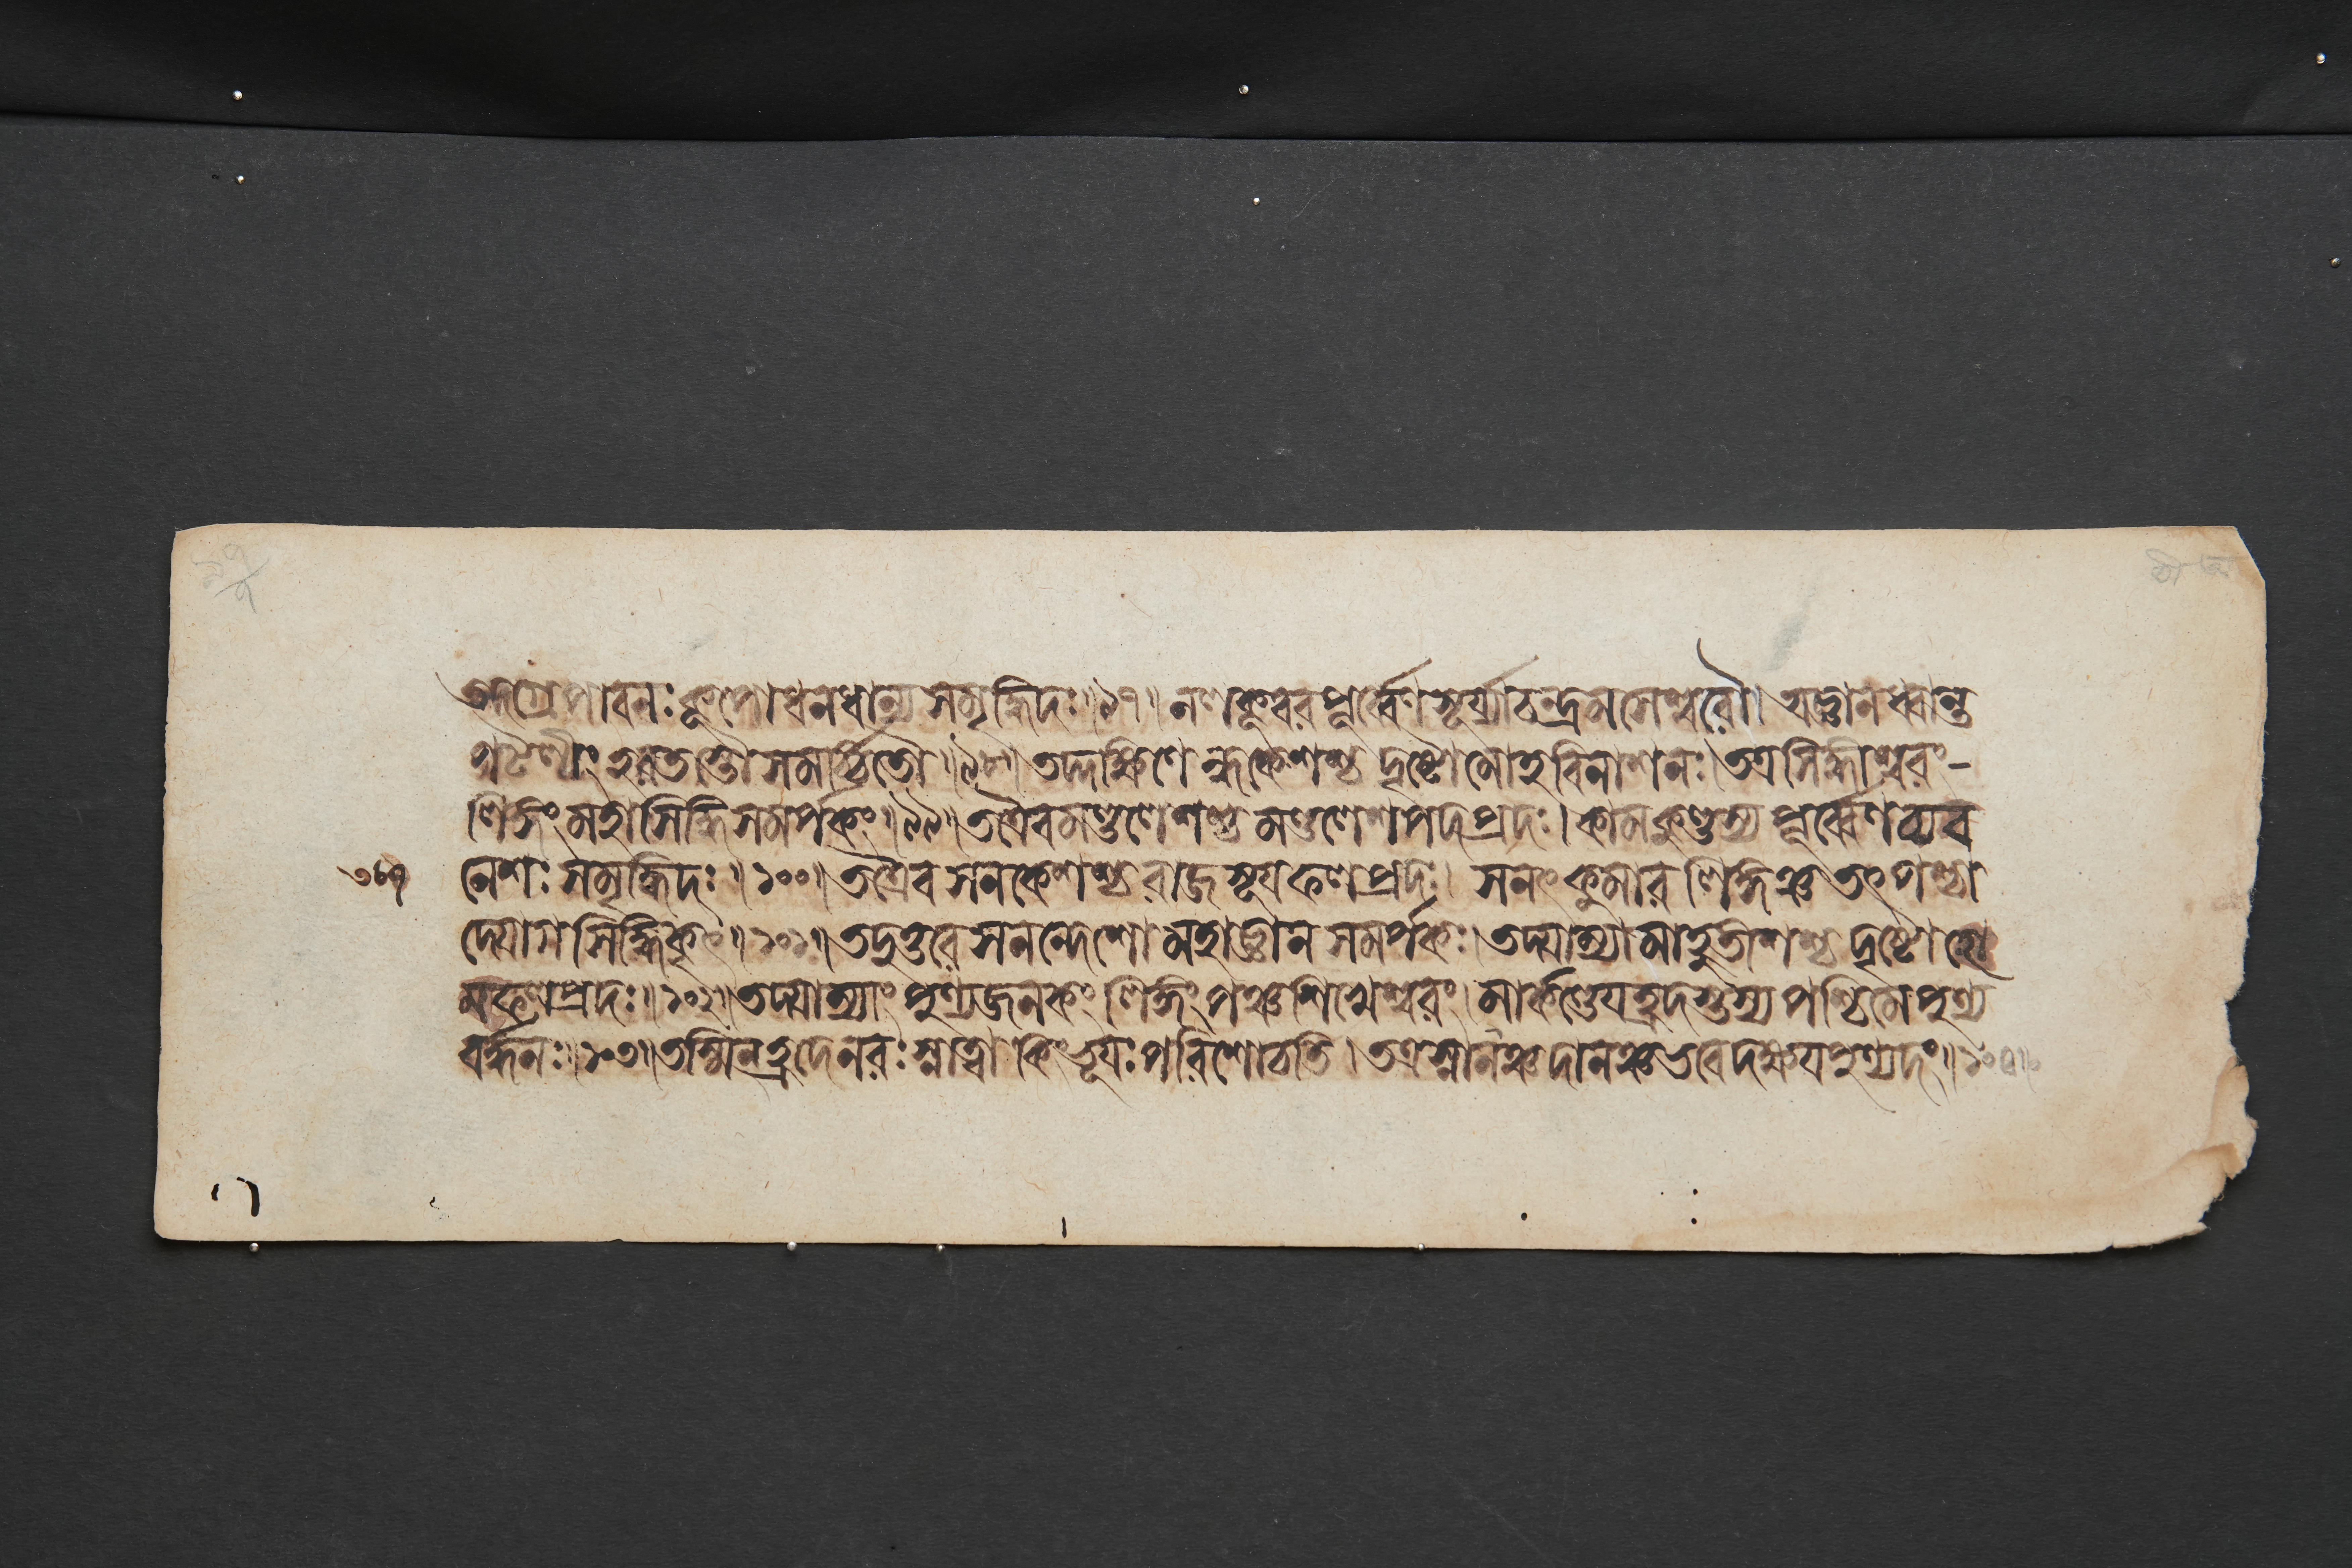 তদগ্রে পাবনঃ কূপো ধনধান্য সমৃদ্ধিদঃ॥৯৭॥ নলকূবর পূর্ব্বেণ সূর্য্যাচন্দ্রমসেশ্বরৌ। অজ্ঞানধ্বান্ত
পটলীং হরতস্তৌ সমর্চ্চিতৌ॥৯৮॥ দৃষ্টো মোহবিনাশনঃ। তত্র সিদ্ধীশ্বরং-
লিঙ্গং মহাসিদ্ধিসমর্পকং॥৯৯॥ তত্রৈব মণ্ডলেশশ্চ মণ্ডলেশপদপ্রদঃ। কামকুণ্ডস্য পূর্ব্বেণ চ্যব
৩৮৭ নেশঃ সমৃদ্ধিদঃ॥১০০॥ তত্রৈব সনকেশশ্চ রাজসূয়ফলপ্রদঃ। সনৎকুমার লিঙ্গঞ্চ তৎপশ্চা
দ্যোগসিদ্ধিকৃৎ॥১০১॥ তদুত্তরে সনন্দেশো মহাজ্ঞান সমর্পকঃ। তদ্যাম্যামাহুতীশশ্চ দৃষ্টো হো
মফলপ্রদঃ॥১০২॥ তদ্যাম্যাং পুণ্যজনকং লিঙ্গং পঞ্চশিখেশ্বরং। মার্কণ্ডেয়হ্রদস্তস্য পশ্চিমে পুণ্য
বর্দ্ধনঃ॥১০৩॥ তস্মিন্হ্রদে নরঃ স্নাত্বা কিং ভূয়ঃ পরিশোচতি। তত্র স্নানঞ্চ দানঞ্চ ভবেদক্ষয়পুণ্যদং॥১০৪॥